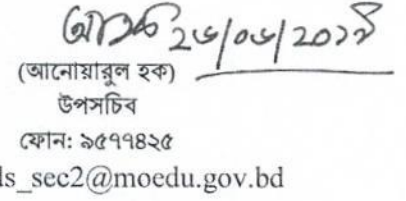 ২৬/০৬/২০১৯
(আনোয়ারুল হক)
উপসচিব
ফোন: ৯৫৭৭৪২৫
ds_sec2@moedu.gov.bd